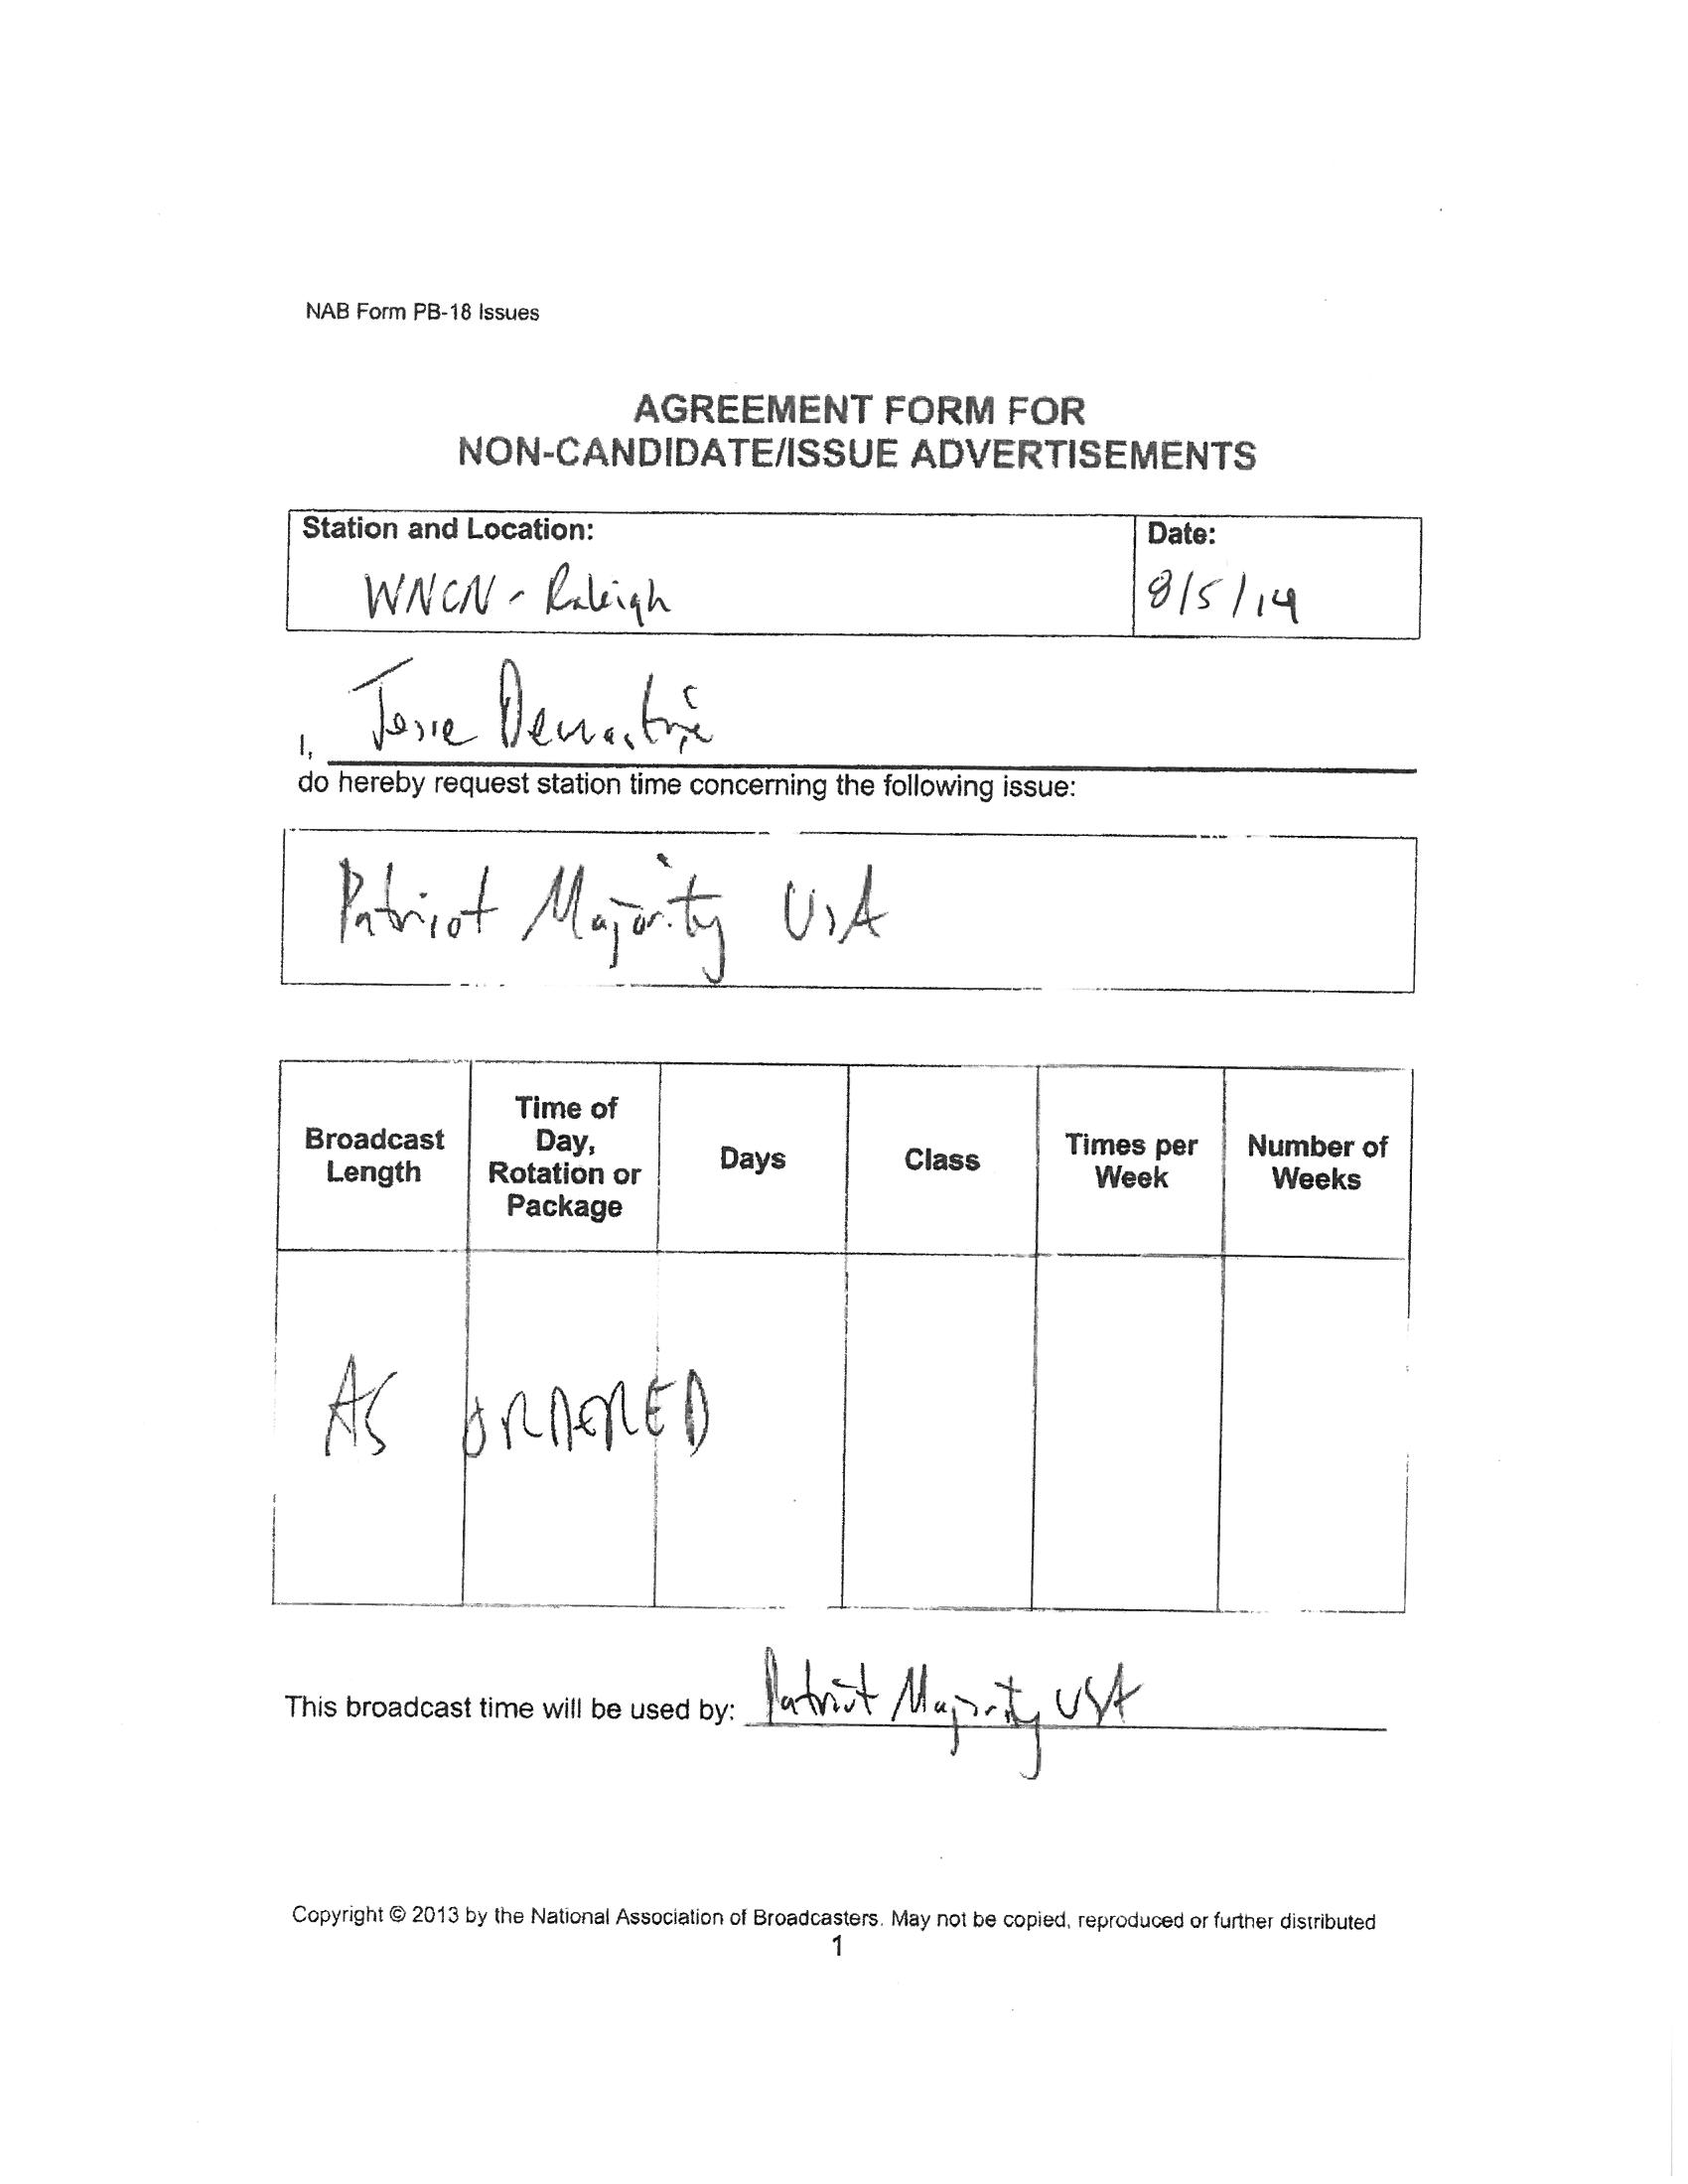 NAB Form PB-18 Issues
AGREEMENT FORM FOR
NON-CANDIDATE/ISSUE ADVERTISEMENTS
Station and Location:
Date:
WNCN - Raleigh
8/5/14
I,
do hereby request station time concerning the following issue:
Patriot Majority USA
Broadcast Length
Time of Day, Rotation or Package
Days
Class
Times per Week
Number of Weeks
AS ORDERED
This broadcast time will be used by: Patriot Majority USA
Copyright © 2013 by the National Association of Broadcasters. May not be copied, reproduced or further distributed
1